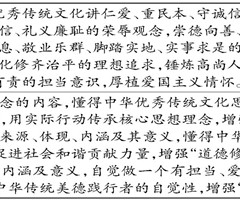 优秀传统文化讲仁爱、重民本、守诚信
信、礼义廉耻的荣辱观念，崇德向善、
息、敬业乐群、脚踏实地、实事求是的
化修齐治平的理想追求，锤炼高尚人
有责的担当意识，厚植爱国主义情怀。
念的内容，懂得中华优秀传统文化思
，用实际行动传承核心思想理念，增强
来源、体现、内涵及其意义，懂得中华
促进社会和谐贡献力量，增强“道德修
内涵及意义，自觉做一个有担当、爱
中华传统美德践行者的自觉性，增强“